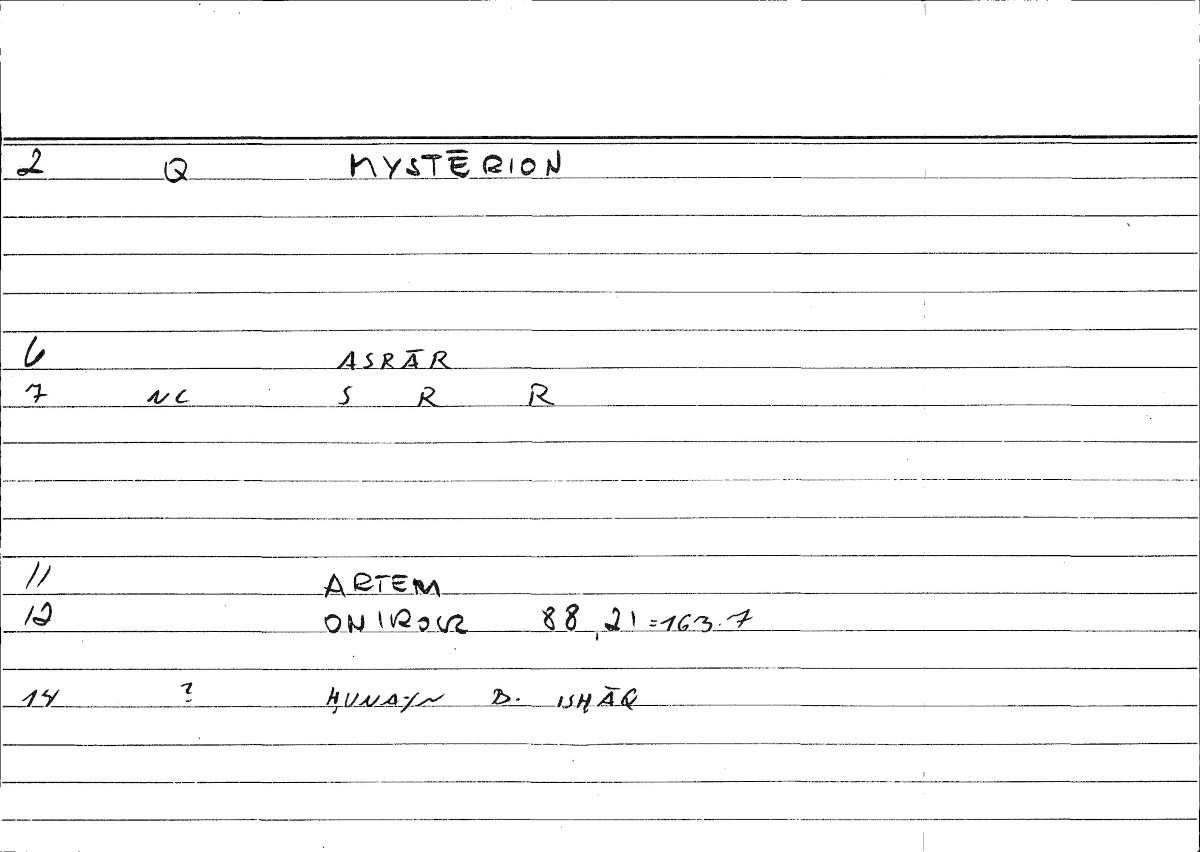 2 Q MYSTĒRION
6 ASRĀR
7 NC S R R
11 ARTEM
12 ONIROCR 88,21=163.7
14 ? ḤUNAYN B. ISḤĀQ